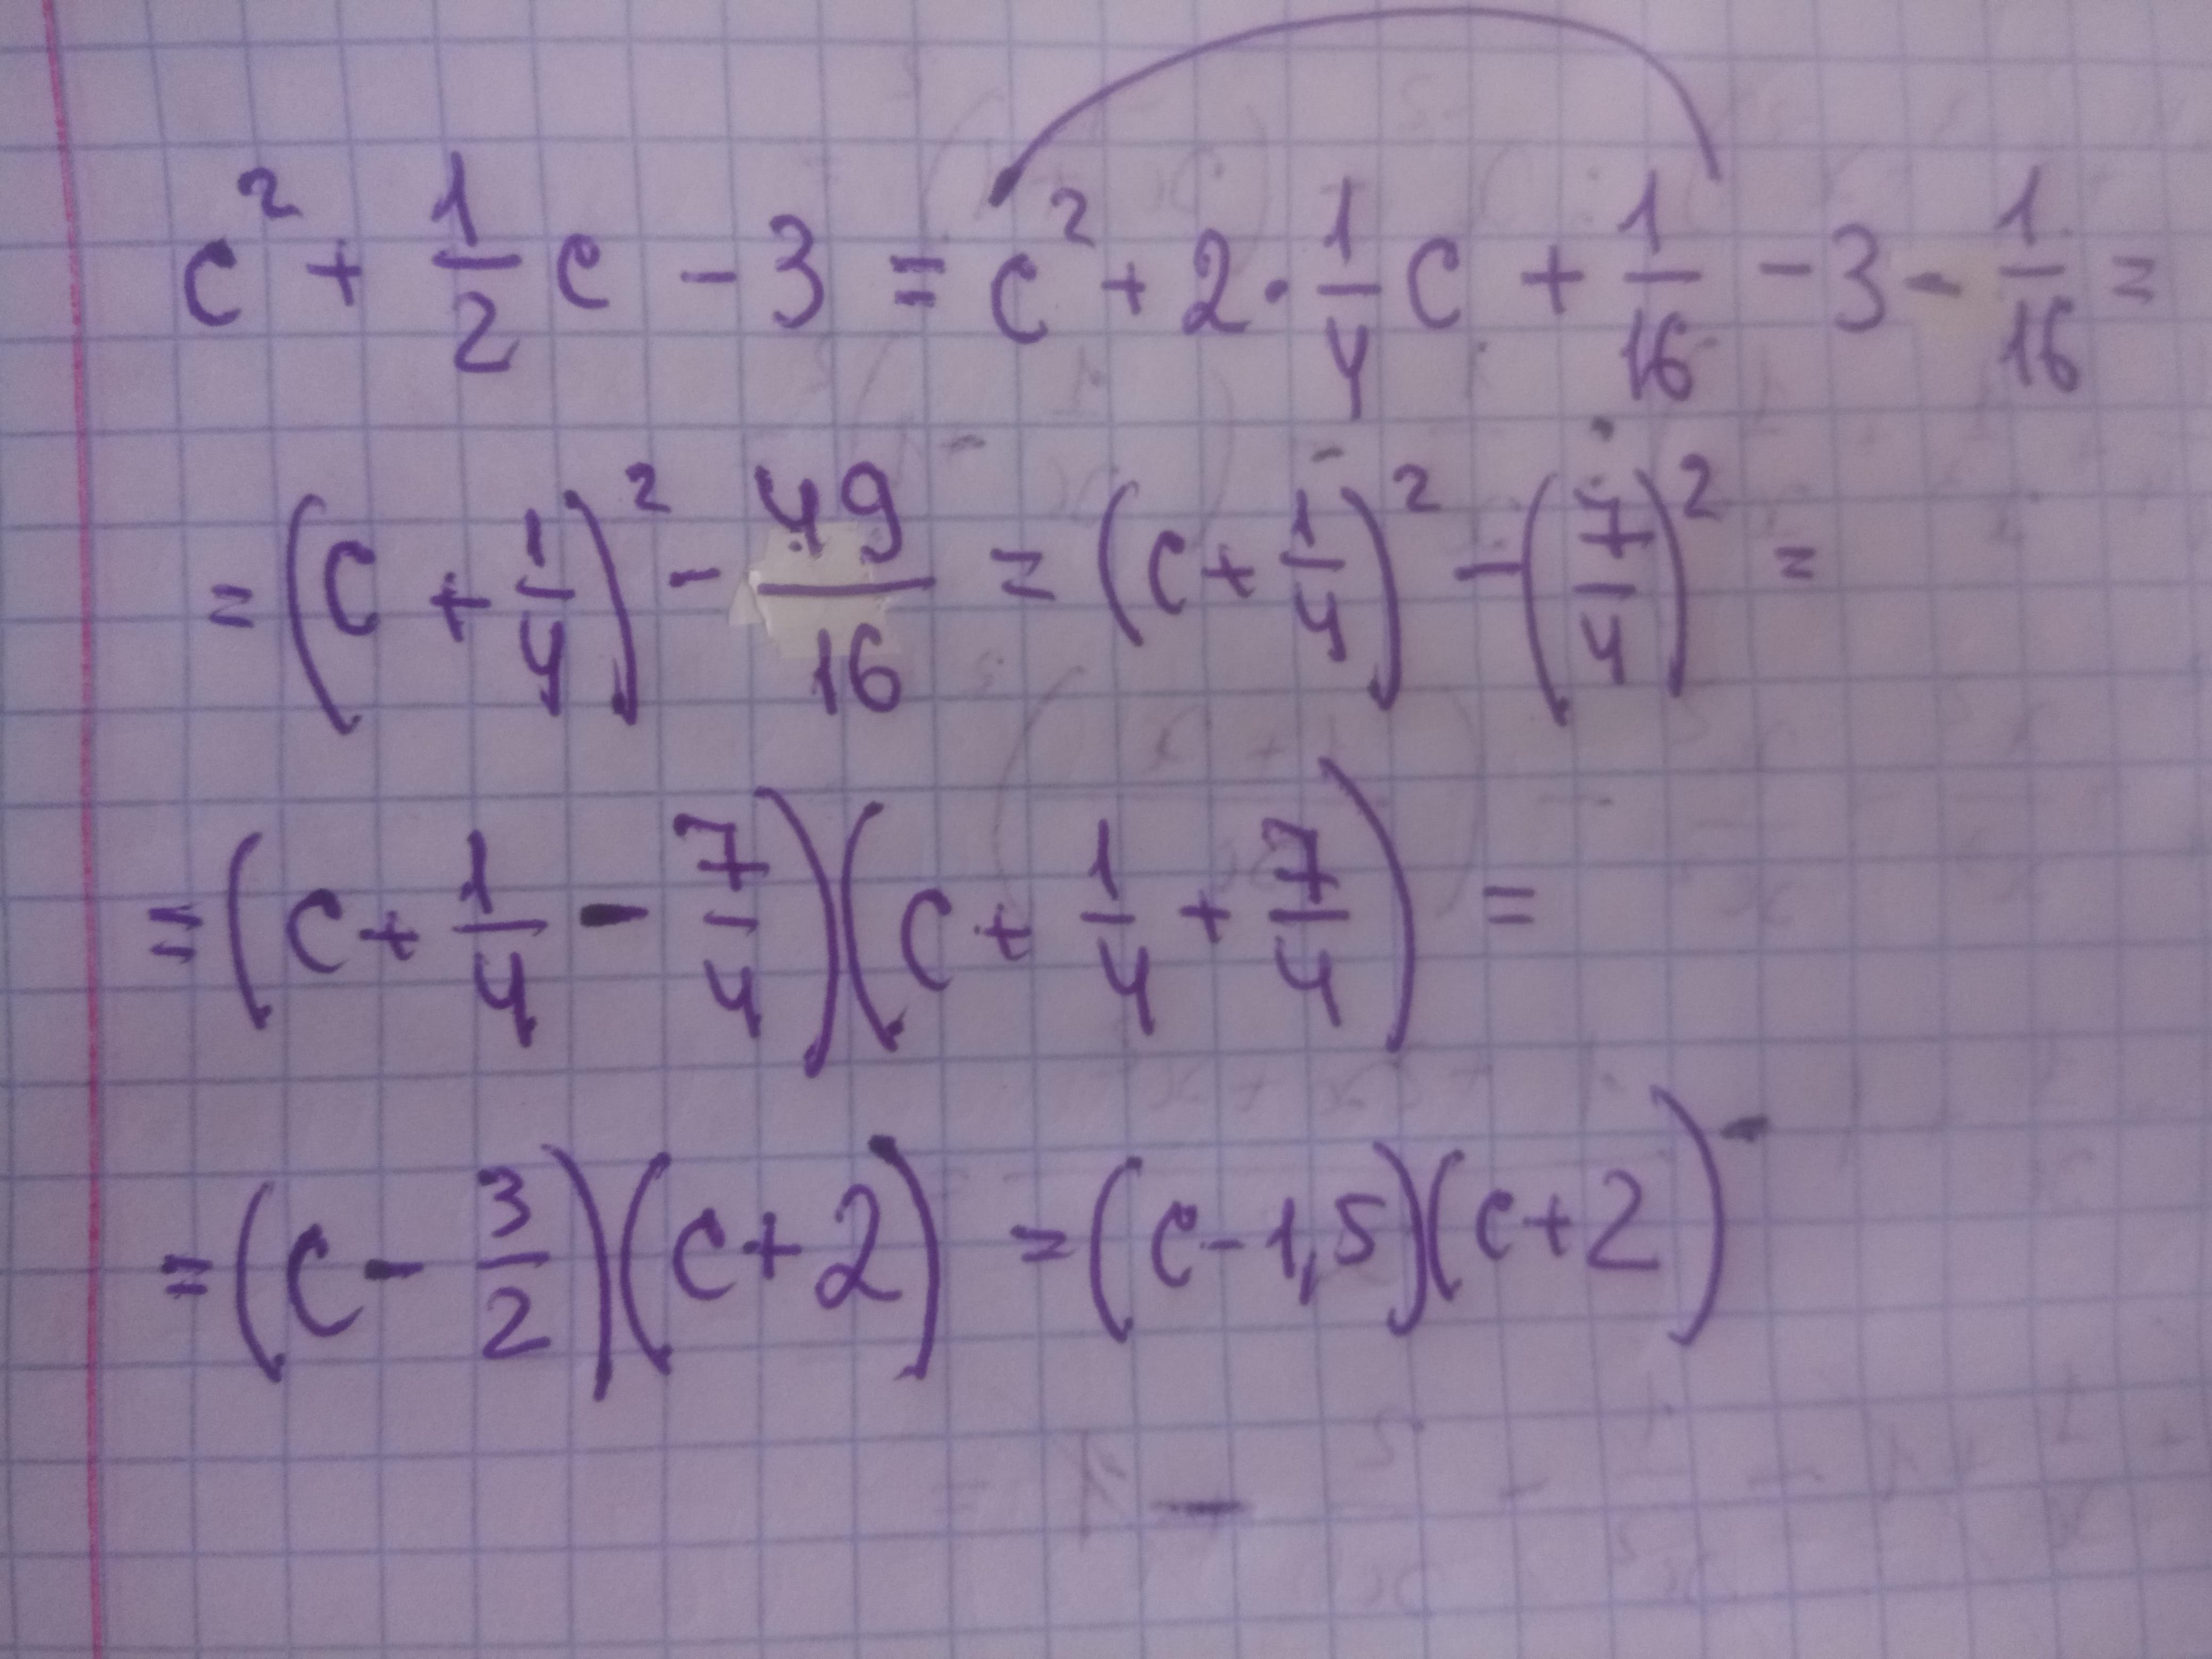 c² + 1/2 c - 3 = c² + 2 · 1/4 c + 1/16 - 3 - 1/16 =
= (c + 1/4)² - 49/16 = (c + 1/4)² - (7/4)² =
= (c + 1/4 - 7/4)(c + 1/4 + 7/4) =
= (c - 3/2)(c + 2) = (c - 1,5)(c + 2)